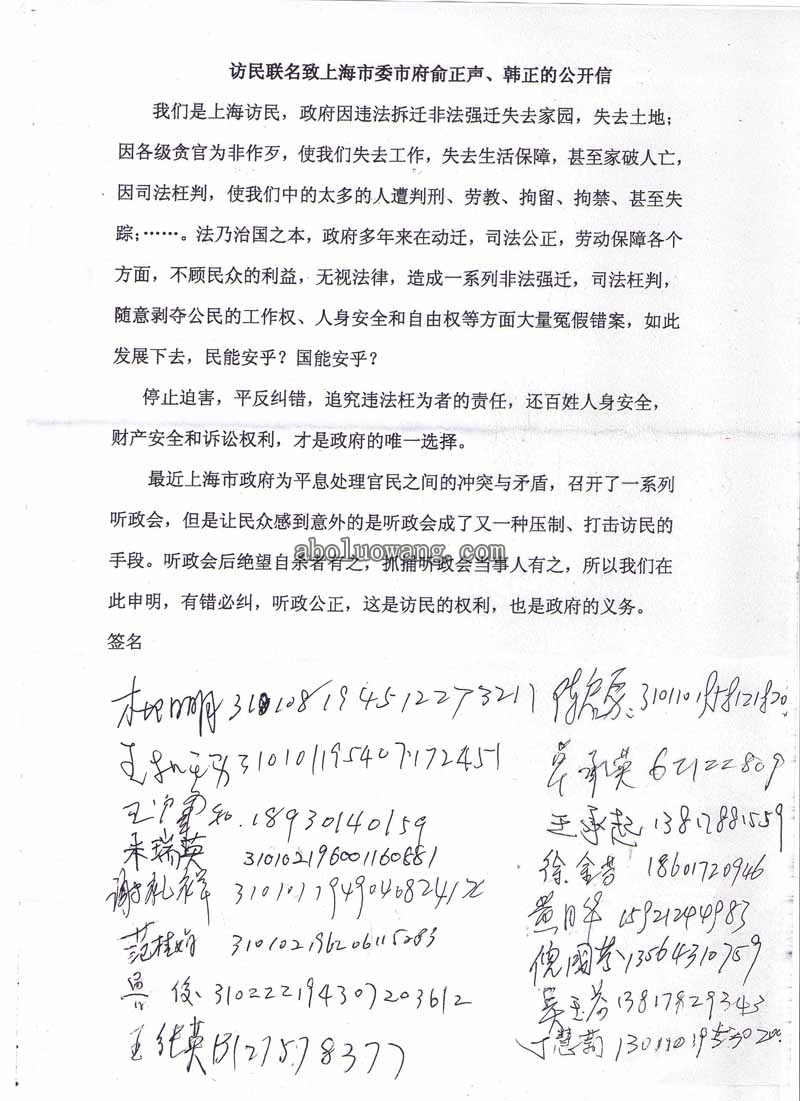 访民联名致上海市委市府俞正声、韩正的公开信
我们是上海访民，政府因违法拆迁非法强迁失去家园，失去土地；
因各级贪官为非作歹，使我们失去工作，失去生活保障，甚至家破人亡，
因司法枉判，使我们中的太多的人遭判刑、劳教、拘留、拘禁、甚至失
踪；……。法乃治国之本，政府多年来在动迁，司法公正，劳动保障各个
方面，不顾民众的利益，无视法律，造成一系列非法强迁，司法枉判，
随意剥夺公民的工作权、人身安全和自由权等方面大量冤假错案，如此
发展下去，民能安乎？国能安乎？
停止迫害，平反纠错，追究违法枉为者的责任，还百姓人身安全，
财产安全和诉讼权利，才是政府的唯一选择。
最近上海市政府为平息处理官民之间的冲突与矛盾，召开了一系列
听政会，但是让民众感到意外的是听政会成了又一种压制、打击访民的
aboluowang.com
手段。听政会后绝望自杀者有之，抓捕听政会当事人有之，所以我们在
此申明，有错必纠，听政公正，这是访民的权利，也是政府的义务。
签名
310108194512273217
310101195407172451
18930140159
朱瑞英 310102196001160881
谢礼祥
范桂娟 310102196206115283
俊 310222194307203612
王 英
承英 62122809
王承起 13817881559
徐金 18601720946
黄月华 15921244983
倪国芬 13564310759
吴玉芬 13817829343
慧